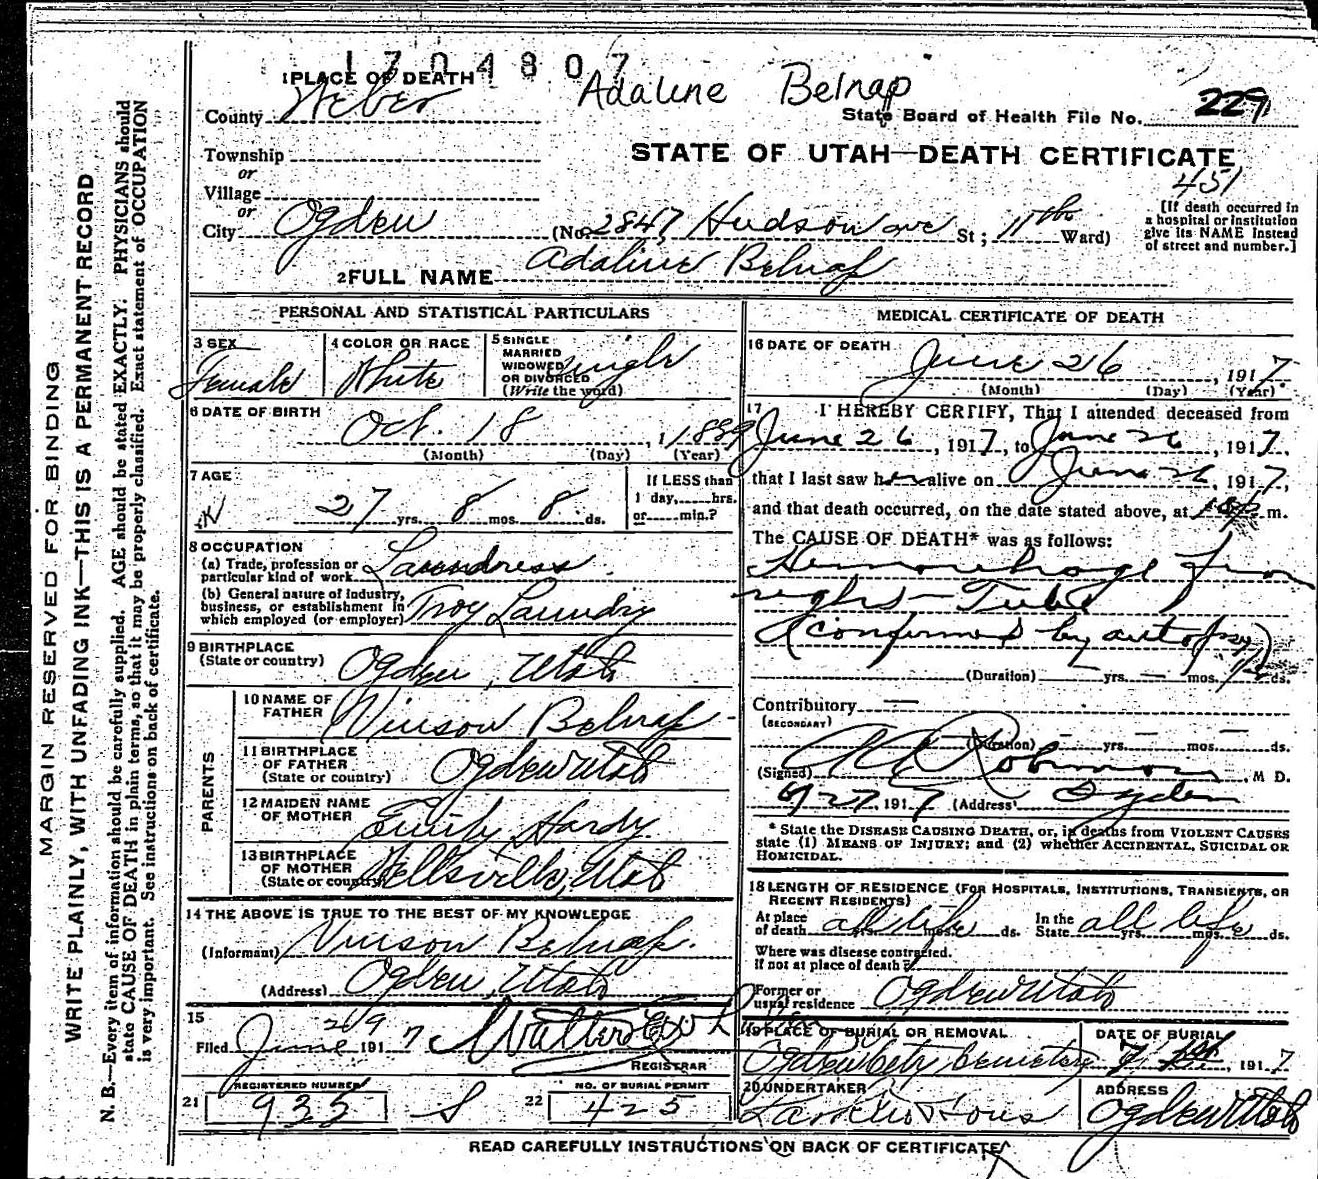 1704807
1 PLACE OF DEATH
Adaline Belnap
County Weber
State Board of Health File No. 229
Township
STATE OF UTAH—DEATH CERTIFICATE
or
451
Village
or
City Ogden (No. 2847 Hudson ave St; 11th Ward)
[If death occurred in
a hospital or institution
give its NAME instead
of street and number.]
2 FULL NAME Adaline Belnap
PERSONAL AND STATISTICAL PARTICULARS
3 SEX
Female
4 COLOR OR RACE
White
5 SINGLE
MARRIED
WIDOWED
OR DIVORCED
(Write the word)
Single
6 DATE OF BIRTH
Oct. 18, 1889
(Month) (Day) (Year)
7 AGE
27 yrs. 8 mos. 8 ds.
If LESS than
1 day, hrs.
or min.?
8 OCCUPATION
(a) Trade, profession or
particular kind of work Laundress
(b) General nature of industry,
business, or establishment in
which employed (or employer) Troy Laundry
9 BIRTHPLACE
(State or country) Ogden, Utah
PARENTS
10 NAME OF
FATHER Vinson Belnap
11 BIRTHPLACE
OF FATHER
(State or country) Ogden Utah
12 MAIDEN NAME
OF MOTHER Emily Hardy
13 BIRTHPLACE
OF MOTHER
(State or country) Wellsville, Utah
14 THE ABOVE IS TRUE TO THE BEST OF MY KNOWLEDGE
(Informant) Vinson Belnap.
(Address) Ogden, Utah
15
Filed June 29 1917 Walter
REGISTRAR
21 REGISTERED NUMBER
935 S
22 NO. OF BURIAL PERMIT
425
MEDICAL CERTIFICATE OF DEATH
16 DATE OF DEATH
June 26, 1917.
(Month) (Day) (Year)
17 I HEREBY CERTIFY, That I attended deceased from
June 26, 1917, to June 26, 1917,
that I last saw her alive on June 26, 1917,
and that death occurred, on the date stated above, at m.
The CAUSE OF DEATH* was as follows:
Hemorrhage from
right Tube
(confirmed by autopsy)
(Duration) yrs. — mos. 1/2 ds.
Contributory —
(SECONDARY)
(Duration) — yrs. — mos. — ds.
(Signed) Robinson, M D.
6/27, 1917 (Address) Ogden
* State the DISEASE CAUSING DEATH, or, in deaths from VIOLENT CAUSES
state (1) MEANS OF INJURY; and (2) whether ACCIDENTAL, SUICIDAL OR
HOMICIDAL.
18 LENGTH OF RESIDENCE (FOR HOSPITALS, INSTITUTIONS, TRANSIENTS, OR
RECENT RESIDENTS)
At place
of death all life yrs. mos. ds.
In the
State all life yrs. mos. ds.
Where was disease contracted.
If not at place of death?
Former or
usual residence Ogden Utah
19 PLACE OF BURIAL OR REMOVAL
Ogden City Cemetery
DATE OF BURIAL
, 1917
20 UNDERTAKER
ADDRESS
Ogden Utah
READ CAREFULLY INSTRUCTIONS ON BACK OF CERTIFICATE
MARGIN RESERVED FOR BINDING
WRITE PLAINLY, WITH UNFADING INK—THIS IS A PERMANENT RECORD
N. B.—Every item of information should be carefully supplied. AGE should be stated EXACTLY. PHYSICIANS should
state CAUSE OF DEATH in plain terms, so that it may be properly classified. Exact statement of OCCUPATION
is very important. See instructions on back of certificate.